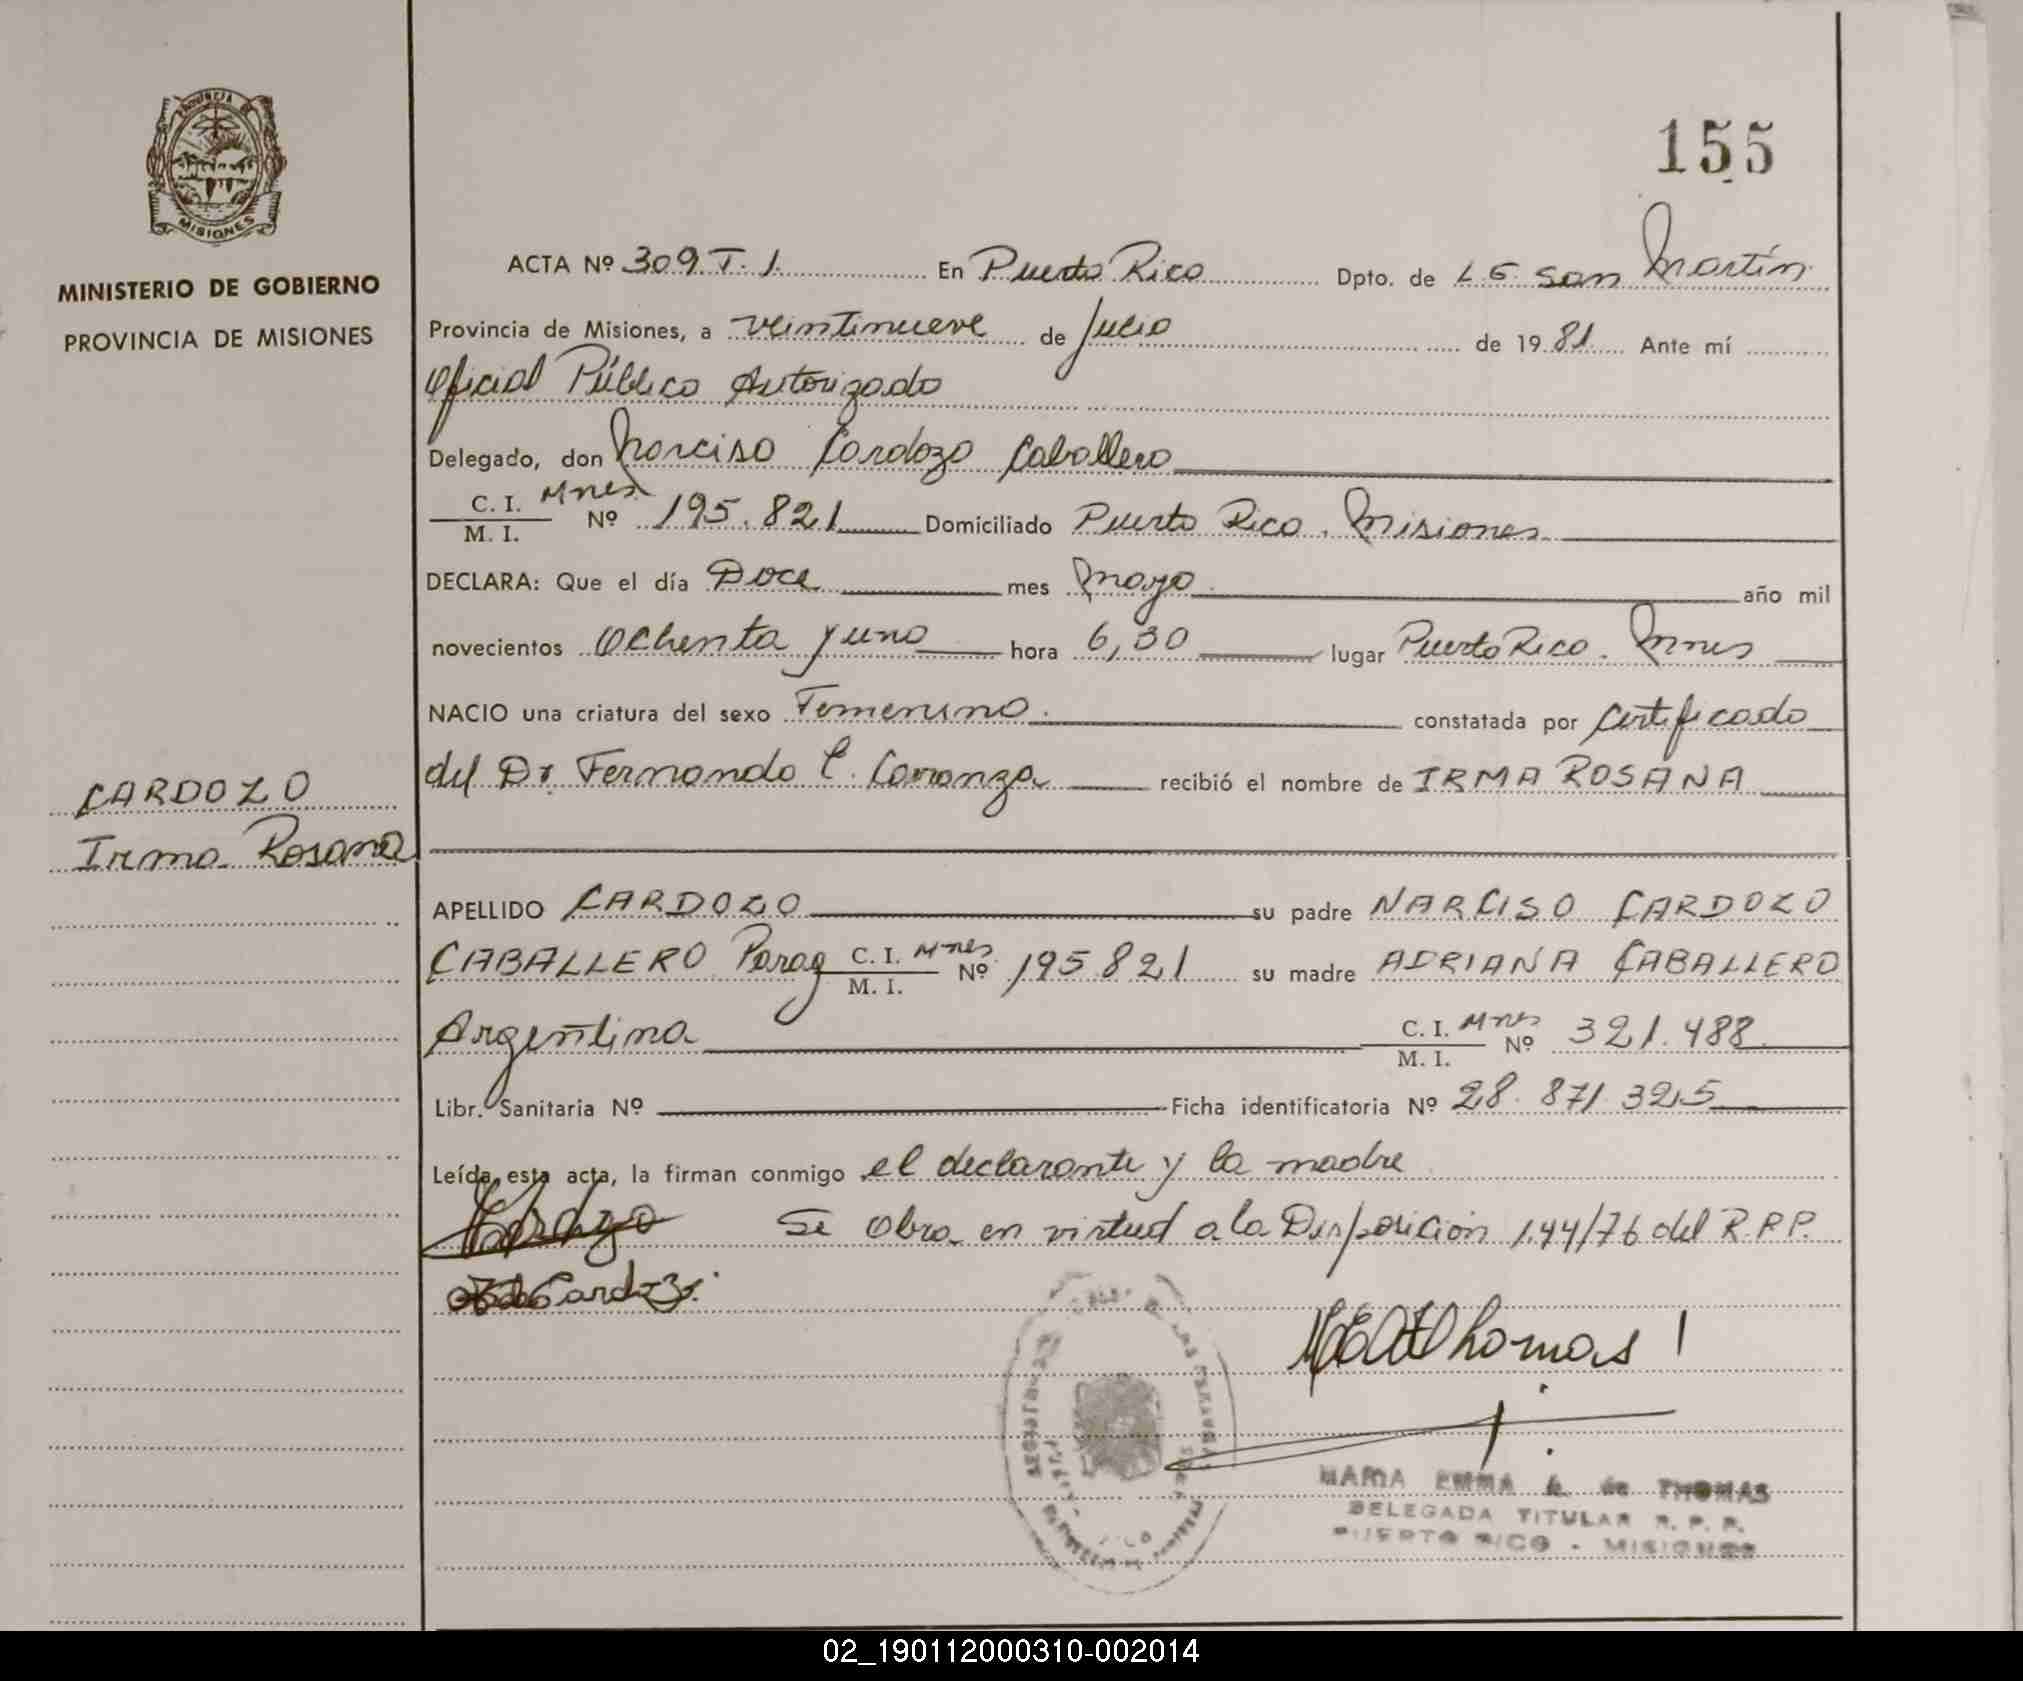 PROVINCIA DE
MISIONES
MINISTERIO DE GOBIERNO
PROVINCIA DE MISIONES
155
ACTA Nº 309 T. 1. En Puerto Rico Dpto. de L. G. San Martín
Provincia de Misiones, a veintinueve de Julio de 1981 Ante mí
Oficial Público Autorizado
Delegado, don Narciso Cardozo Caballero
C. I. Mnes
M. I. Nº 195.821 Domiciliado Puerto Rico. Misiones
DECLARA: Que el día Doce mes Mayo año mil
novecientos Ochenta y uno hora 6,30 lugar Puerto Rico. Mnes
NACIO una criatura del sexo Femenino. constatada por Certificado
del Dr. Fernando C. Carranza recibió el nombre de IRMA ROSANA
CARDOZO
Irma Rosana
APELLIDO CARDOZO su padre NARCISO CARDOZO
CABALLERO Parag C. I. Mnes
M. I. Nº 195.821 su madre ADRIANA CABALLERO
Argentina C. I. Mnes
M. I. Nº 321.488
Libr. Sanitaria Nº Ficha identificatoria Nº 28.871.325
Leída esta acta, la firman conmigo el declarante y la madre
Se obra en virtud a la Disposición 144/76 del R.P.P.
Cardozo
MARIA EMMA A. de THOMAS
DELEGADA TITULAR R. P. P.
PUERTO RICO - MISIONES
02_190112000310-002014